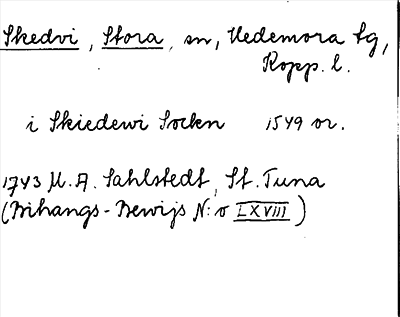 Skedvi, Stora, sn, Hedemora tg,
Kopp. l.
i Skiedewi Sockn 1549 or.
1743 M. A. Sahlstedt, St. Tuna
(Bihangs-Bewijs N:o LXVIII)